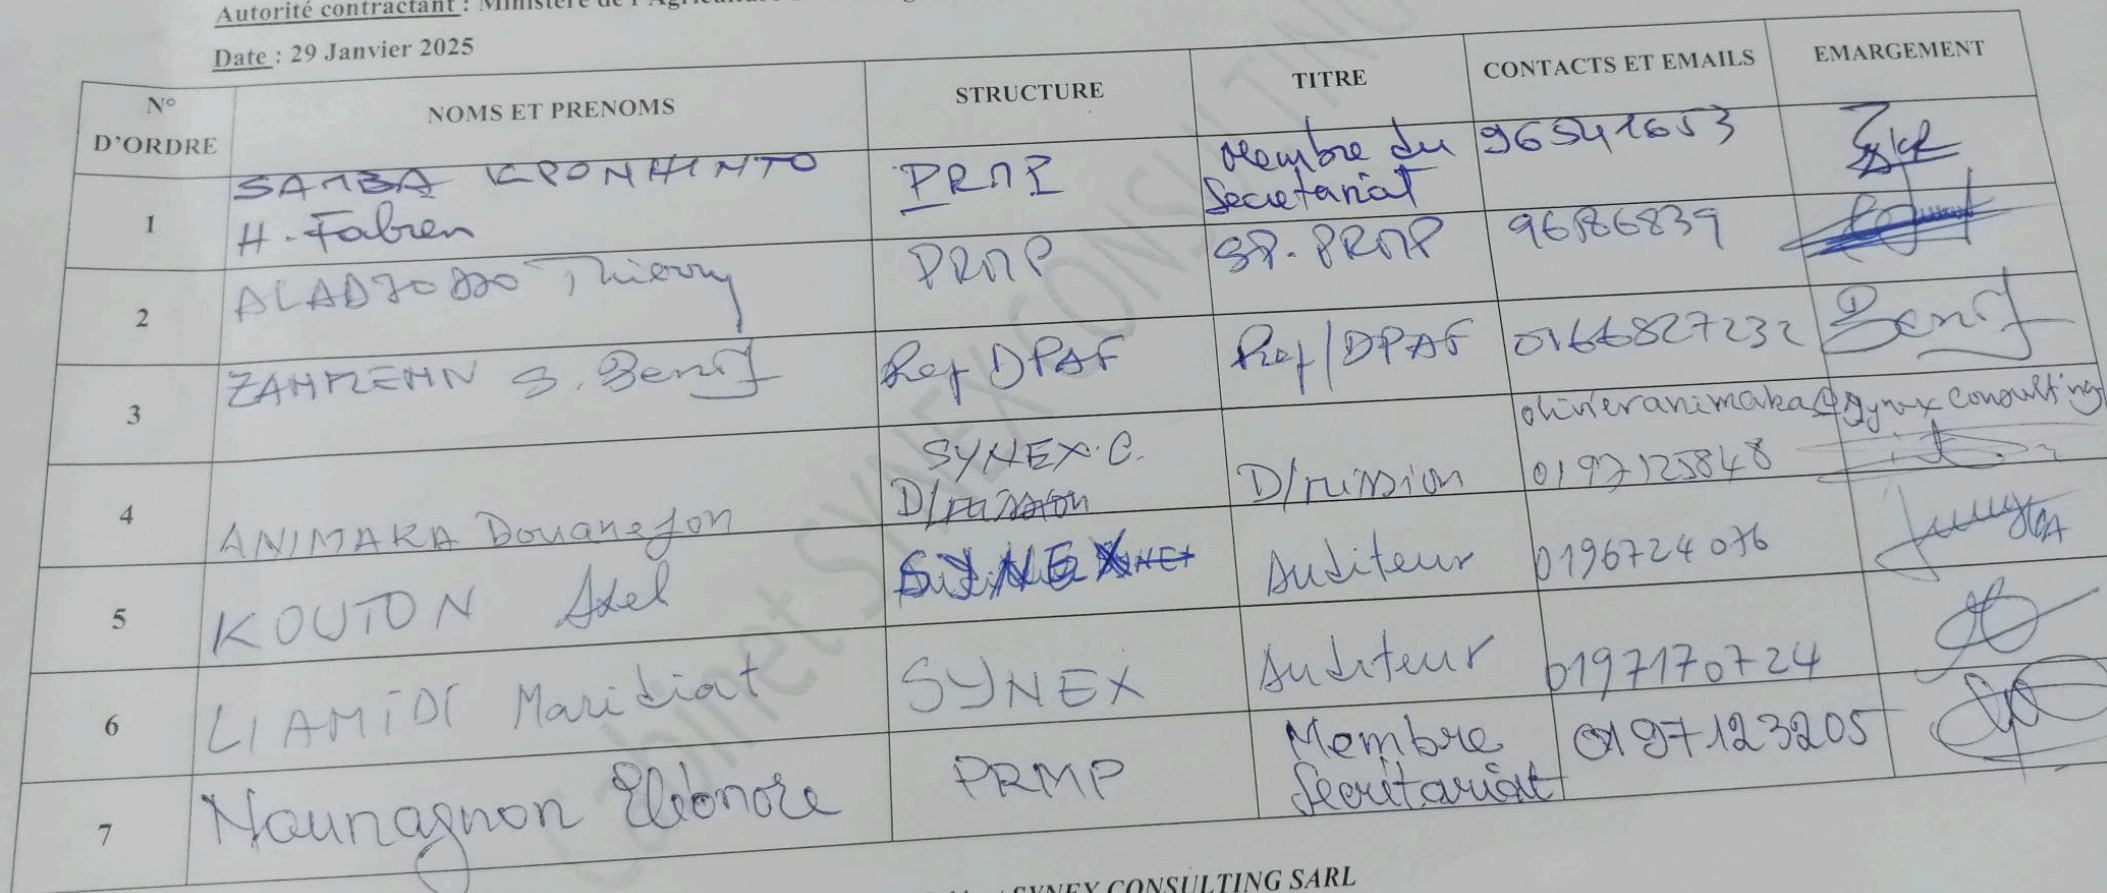 Autorité contractant : Ministère de l'Agriculture
Date : 29 Janvier 2025
N° D'ORDRE NOMS ET PRENOMS STRUCTURE TITRE CONTACTS ET EMAILS EMARGEMENT
1 SAMBA KPONHINTO H. Fabren PRMP Membre du Secretariat 96541653
2 Thierry PRMP SP. PRMP 96186839
3 S. Benif Ref DPAF Ref/DPAF 0166827232 Benif
4 ANIMAKA Douanefon SYNEX.C. D/mission D/mission olivieranimaka@synex consulting 0197125848
5 KOUTON Axel SYNEX Auditeur 0196724076
6 LIAMIDI Maridiat SYNEX Auditeur 0197170724
7 Nounagnon Eléonore PRMP Membre Secrétariat 0197123205
SYNEX CONSULTING SARL
Cabinet SYNEX CONSULTING